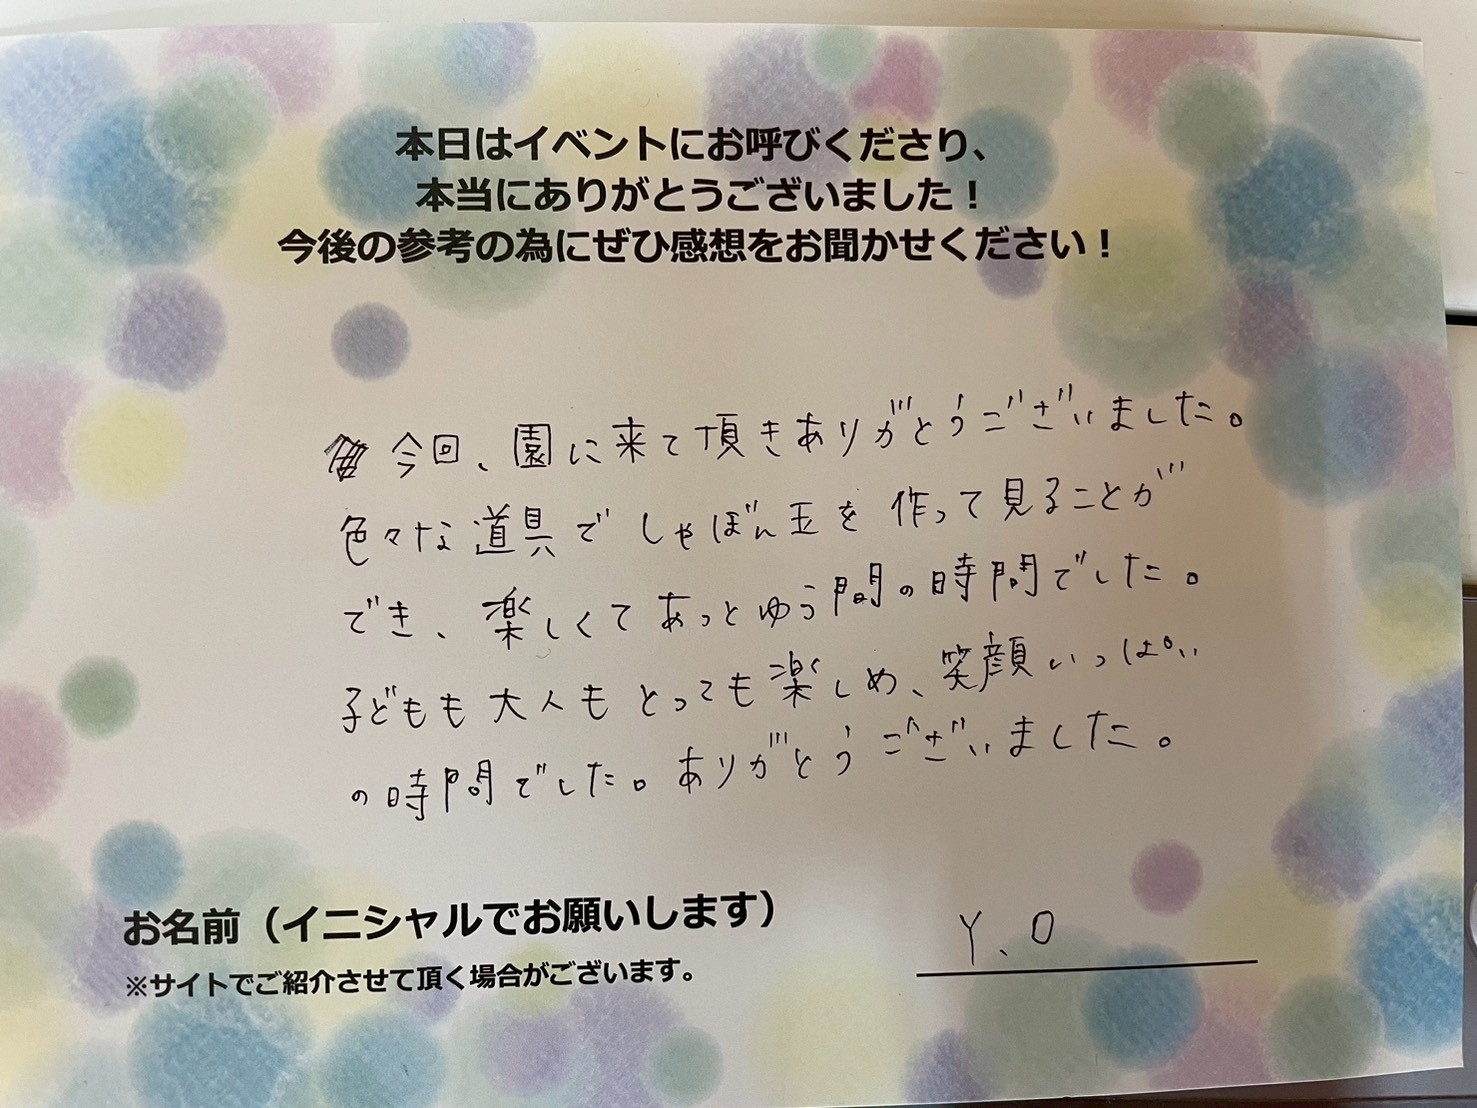 本日はイベントにお呼びくださり、
本当にありがとうございました！
今後の参考の為にぜひ感想をお聞かせください！
今回、園に来て頂きありがとうございました。
色々な道具でしゃぼん玉を作って見ることが
でき、楽しくてあっとゆう間の時間でした。
子どもも大人もとっても楽しめ、笑顔いっぱい
の時間でした。ありがとうございました。
お名前（イニシャルでお願いします）
Y.O
※サイトでご紹介させて頂く場合がございます。